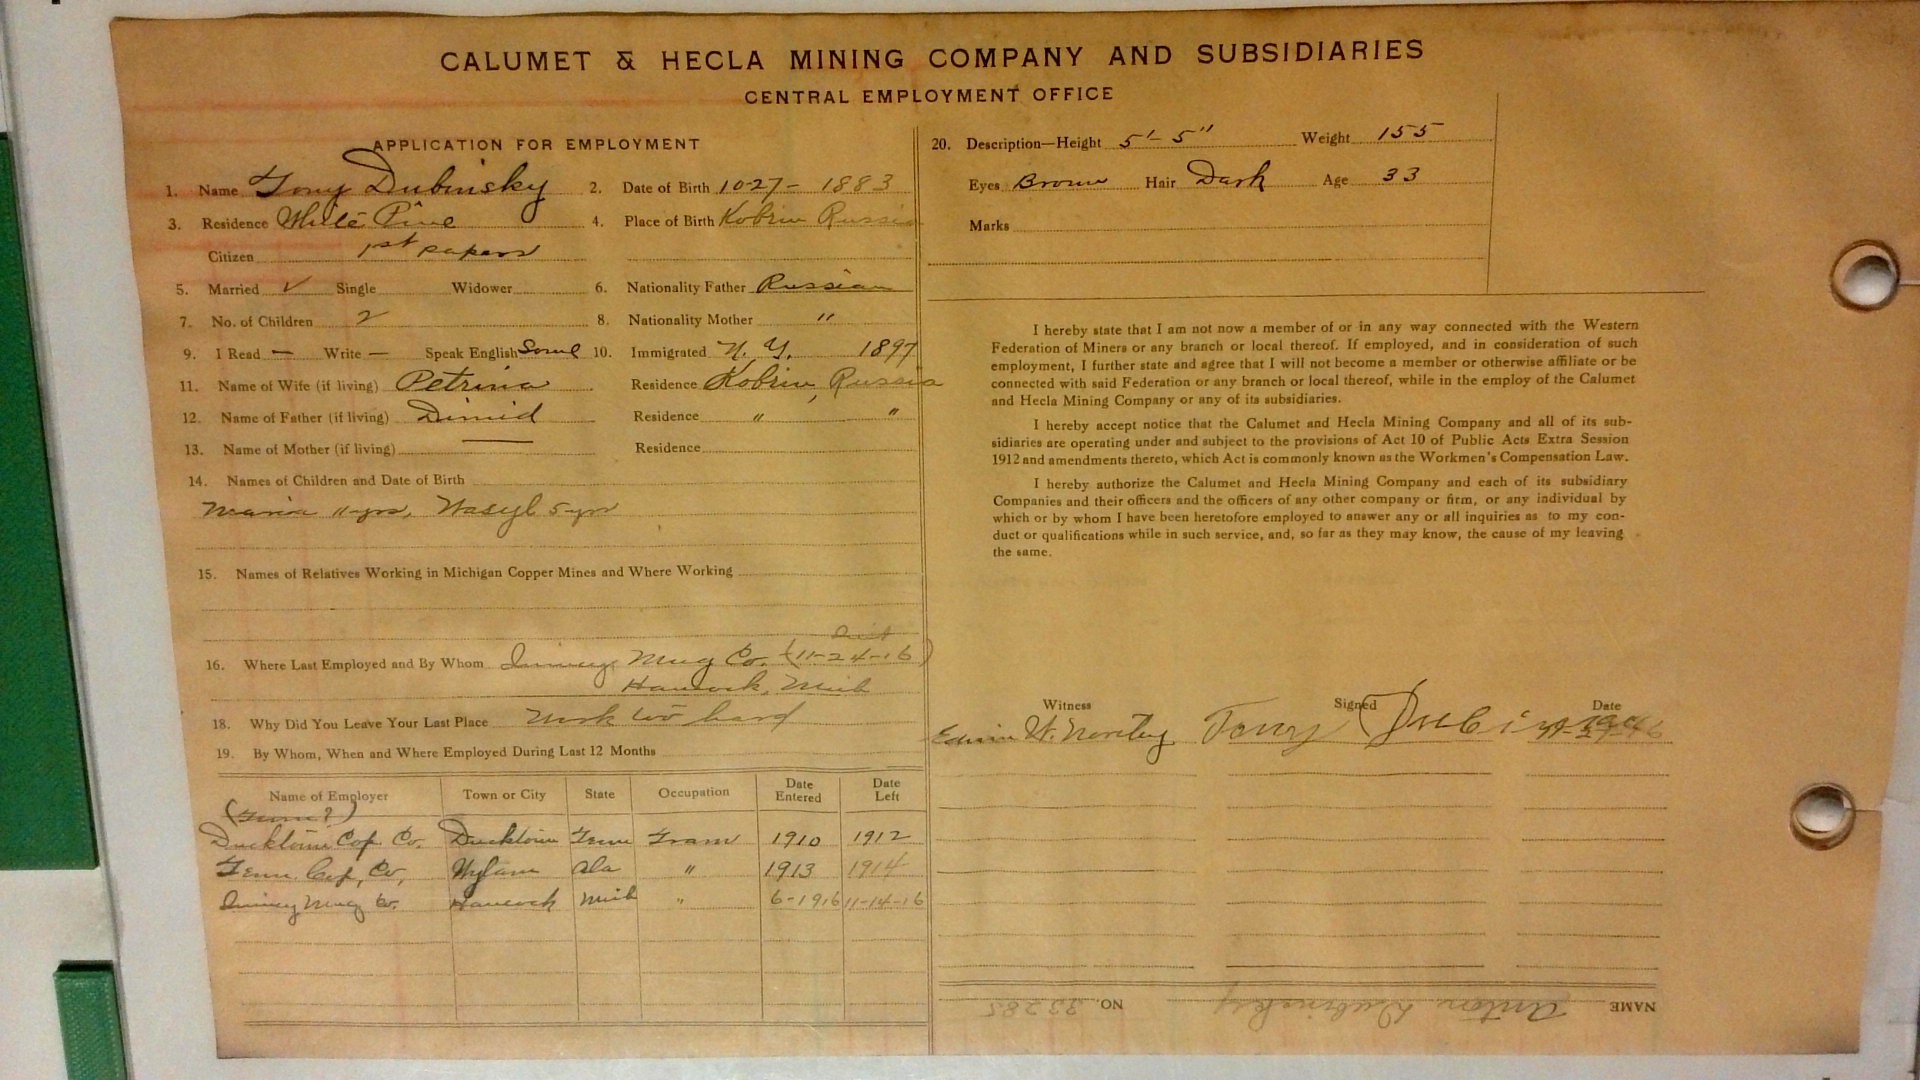 CALUMET & HECLA MINING COMPANY AND SUBSIDIARIES
CENTRAL EMPLOYMENT OFFICE
APPLICATION FOR EMPLOYMENT
1. Name Tony Dubinsky 2. Date of Birth 10-27-1883
3. Residence White Pine 4. Place of Birth Kobrin Russia
Citizen 1st papers
5. Married ✓ Single Widower 6. Nationality Father Russian
7. No. of Children 2 8. Nationality Mother "
9. I Read — Write — Speak English Some 10. Immigrated N. Y. 1897
11. Name of Wife (if living) Petrina Residence Kobrin, Russia
12. Name of Father (if living) Dimid Residence " "
13. Name of Mother (if living) — Residence
14. Names of Children and Date of Birth
Maria 11 yrs, Wasyl 5 yrs
15. Names of Relatives Working in Michigan Copper Mines and Where Working
16. Where Last Employed and By Whom Quincy Mng Co. (11-24-16)
Hancock, Mich
18. Why Did You Leave Your Last Place Work too hard
19. By Whom, When and Where Employed During Last 12 Months
Name of Employer Town or City State Occupation Date Entered Date Left
(Tenn?)
Ducktown Cop. Co. Ducktown Tenn Tram 1910 1912
Tenn. Cop. Co. Wylam Ala " 1913 1914
Quincy Mng Co. Hancock Mich " 6-1916 11-14-16
20. Description—Height 5'-5" Weight 155
Eyes Brown Hair Dark Age 33
Marks
I hereby state that I am not now a member of or in any way connected with the Western
Federation of Miners or any branch or local thereof. If employed, and in consideration of such
employment, I further state and agree that I will not become a member or otherwise affiliate or be
connected with said Federation or any branch or local thereof, while in the employ of the Calumet
and Hecla Mining Company or any of its subsidiaries.
I hereby accept notice that the Calumet and Hecla Mining Company and all of its sub-
sidiaries are operating under and subject to the provisions of Act 10 of Public Acts Extra Session
1912 and amendments thereto, which Act is commonly known as the Workmen's Compensation Law.
I hereby authorize the Calumet and Hecla Mining Company and each of its subsidiary
Companies and their officers and the officers of any other company or firm, or any individual by
which or by whom I have been heretofore employed to answer any or all inquiries as to my con-
duct or qualifications while in such service, and, so far as they may know, the cause of my leaving
the same.
Witness Signed Date
Edwin W. Tony
NAME Anton Dubinsky NO. 33285